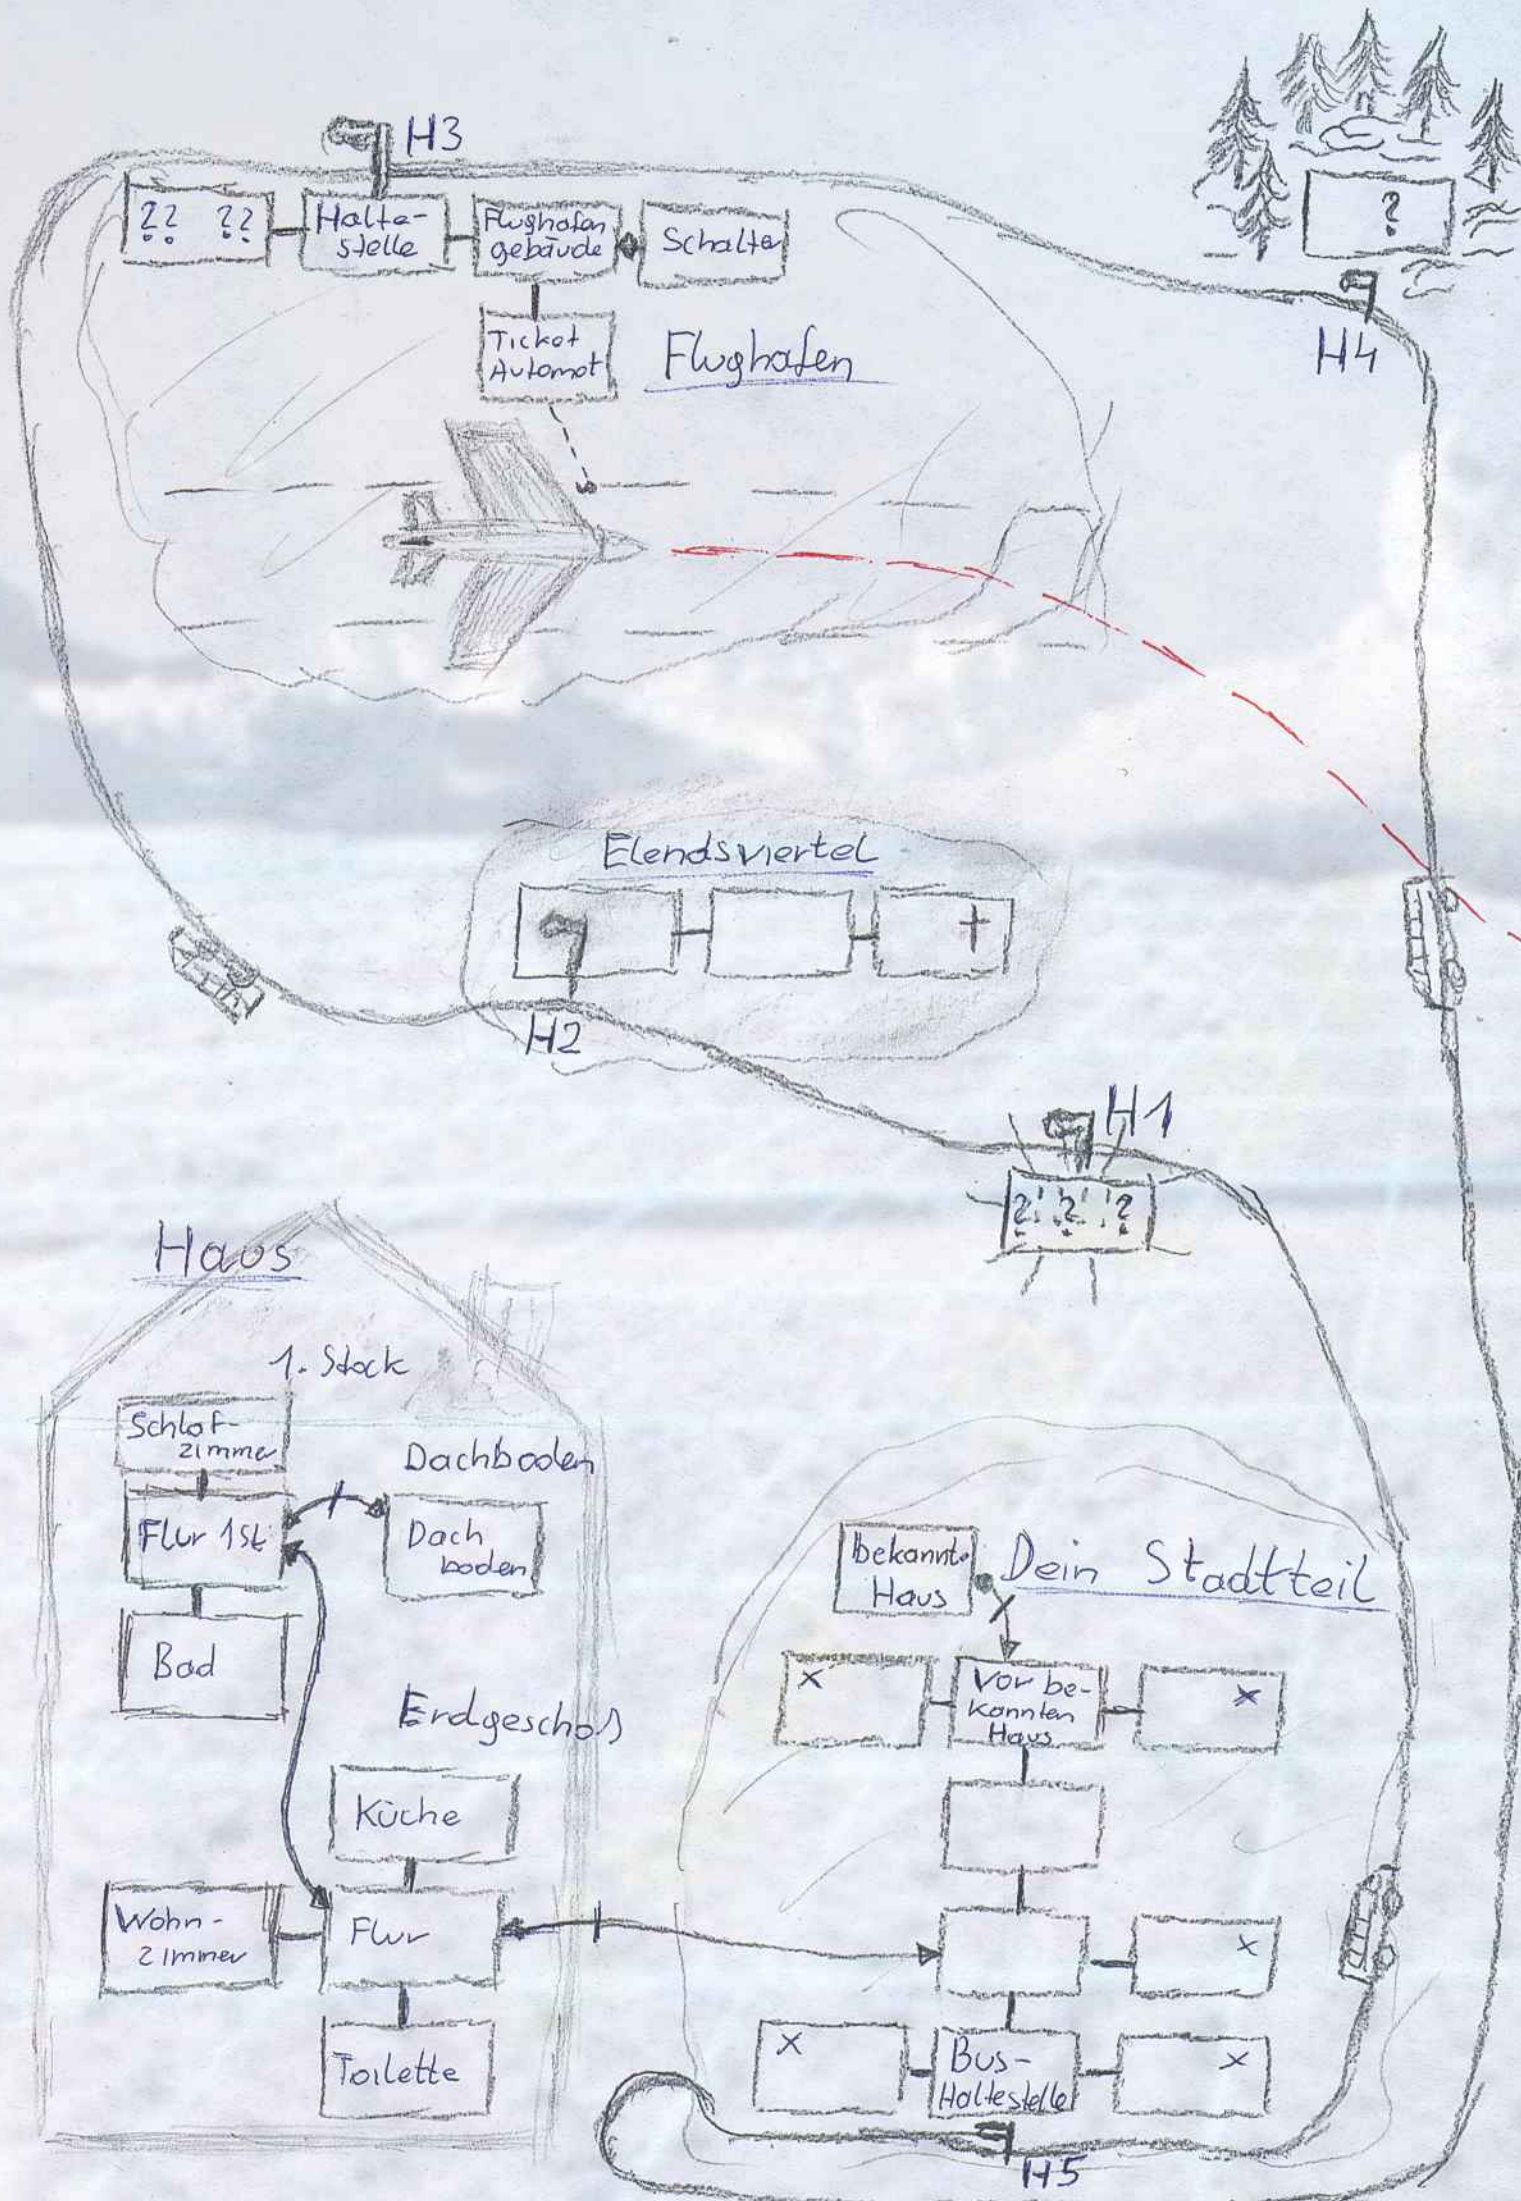 H3
?? ??
Halte-
stelle
Flughafen
gebäude
Schalter
?
H4
Ticket
Automat
Flughafen
Elendsviertel
H2
H1
? ? ?
Haus
1. Stock
Schlaf-
zimmer
Dachboden
Flur 1St.
Dach
boden
Bad
Erdgeschoß
Küche
Wohn-
zimmer
Flur
Toilette
bekannt.
Haus
Dein Stadtteil
x
Vor be-
kannten
Haus
x
x
x
Bus-
Haltestelle
x
H5